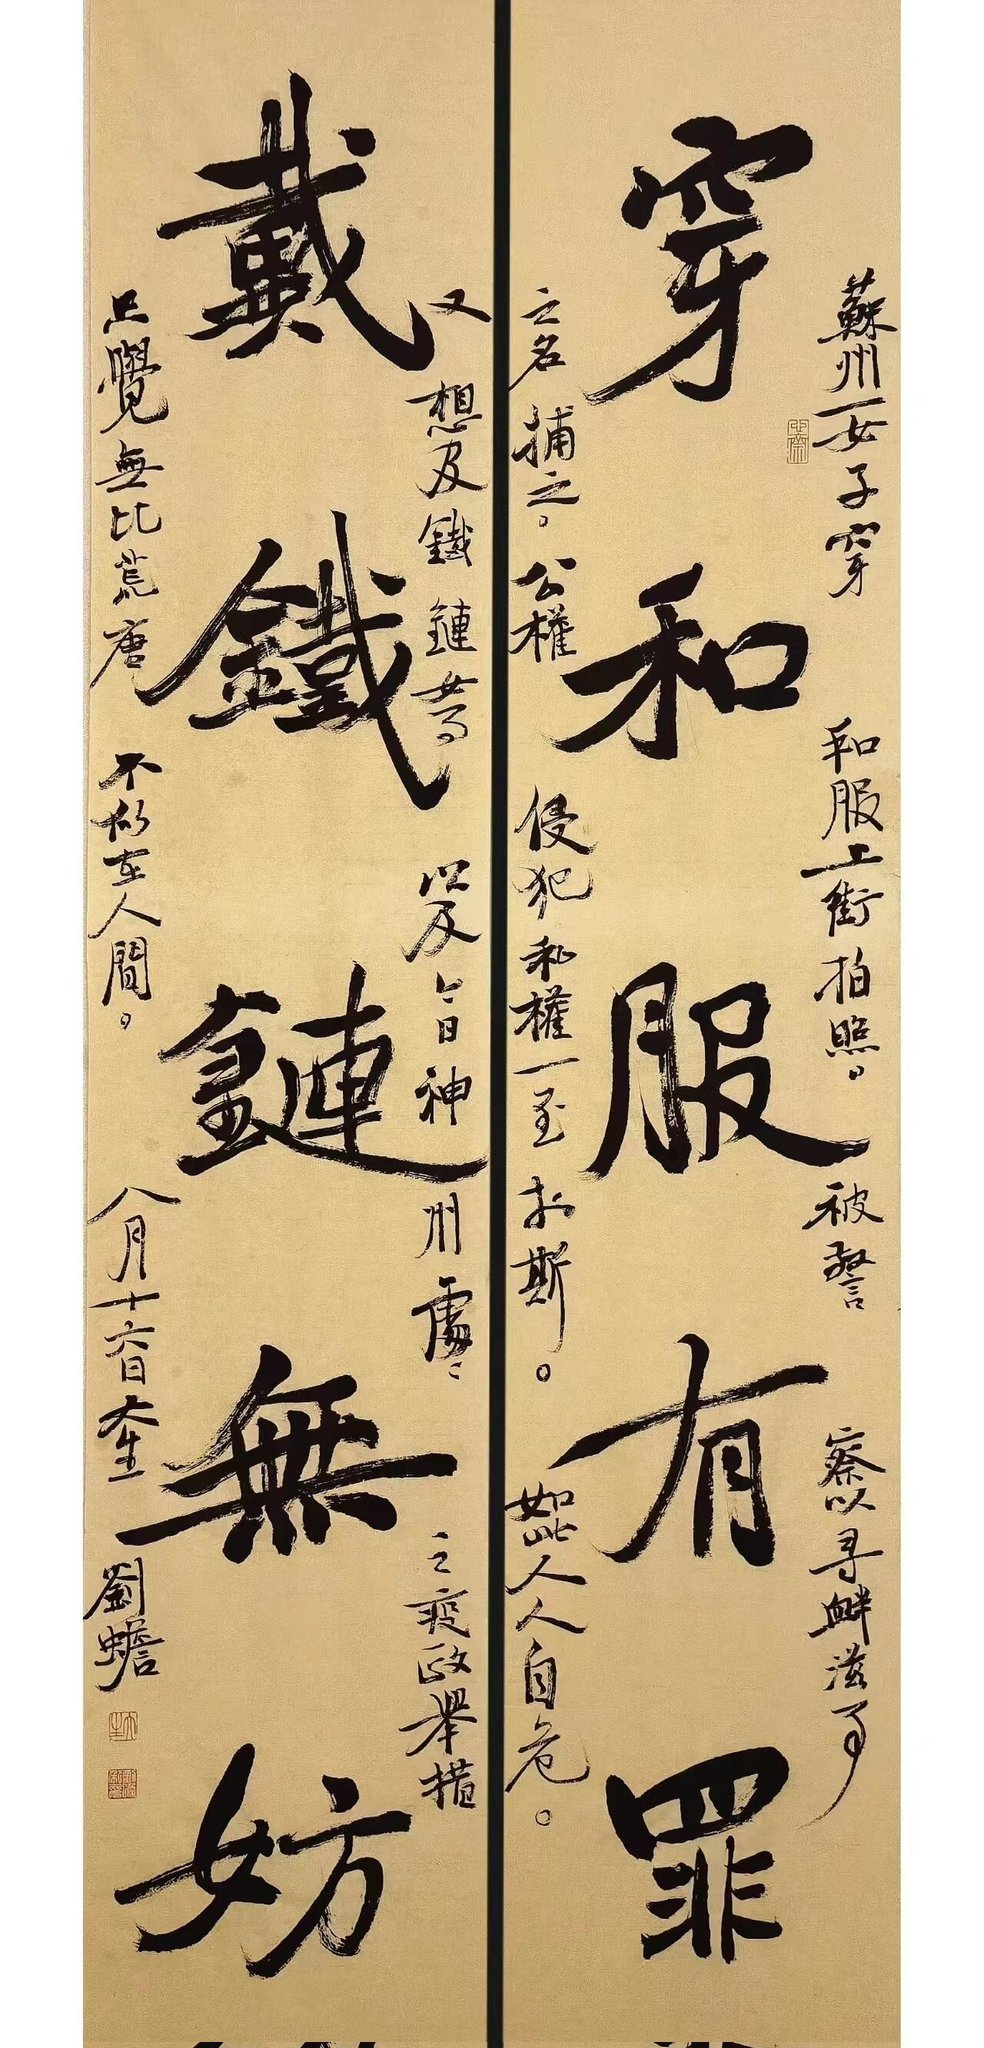 穿和服有罪
蘇州一女子穿和服上街拍照。被警察以尋衅滋事
之名捕之。公權侵犯私權一至於斯。如此人人自危。
戴鐵鏈無妨
又想及鐵鏈女等以及今日神州處處之疫政舉措
只覺無比荒唐不似在人間。八月十六日大生劉蟾